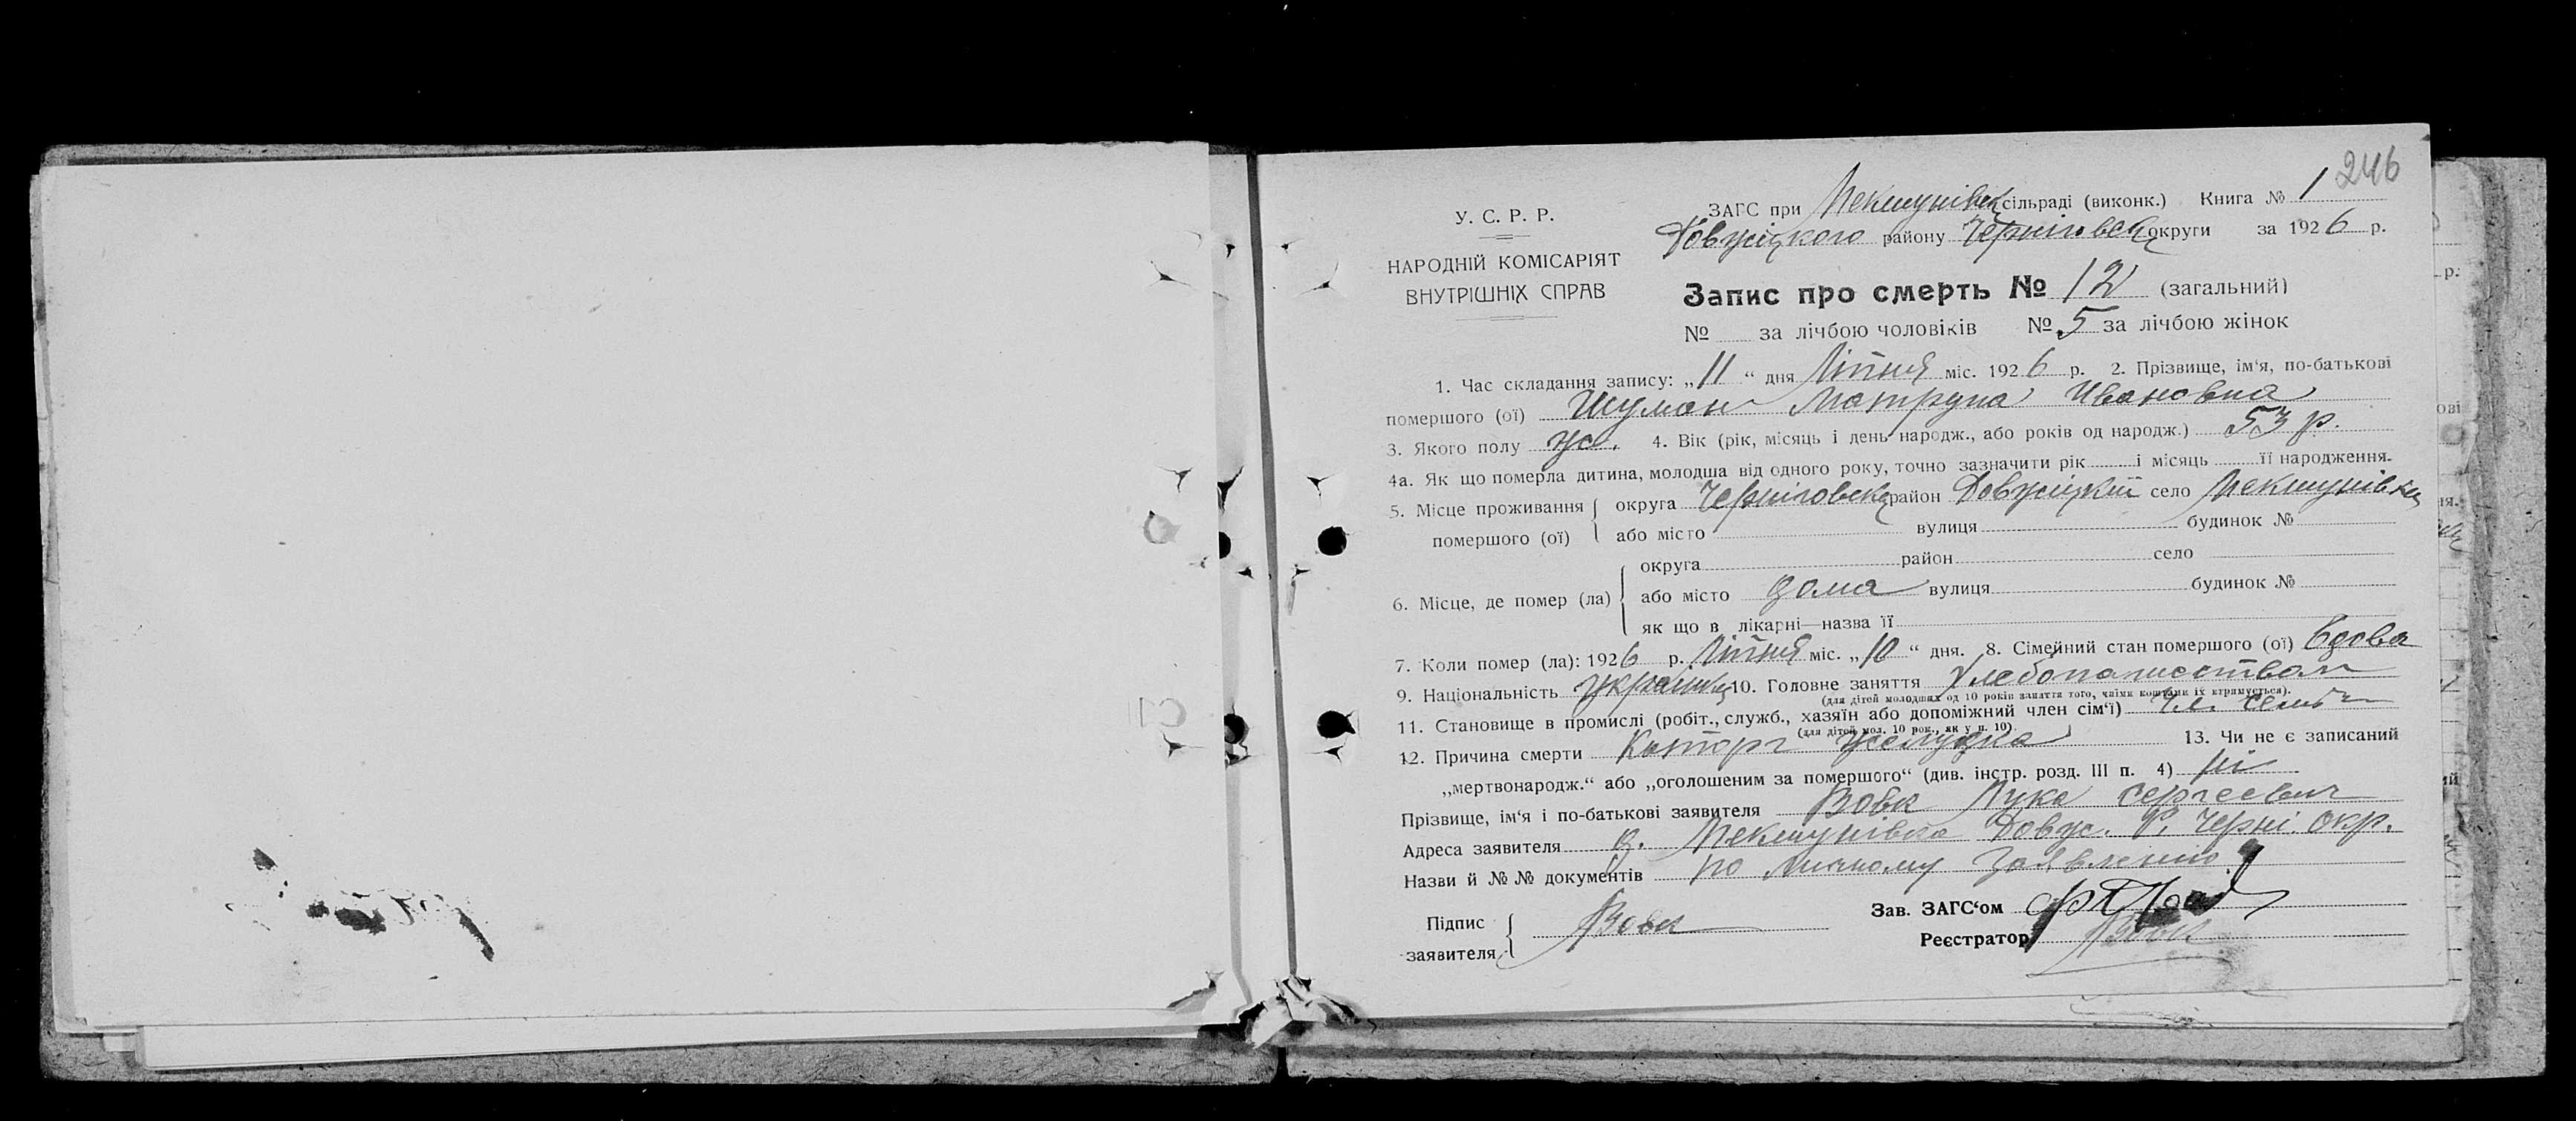 246
У. С. Р. Р.
НАРОДНІЙ КОМІСАРІЯТ
ВНУТРІШНІХ СПРАВ
ЗАГС при сільраді (виконк.) Книга № 1
Довжицкого району Черніговск округи за 1926 р.
Запис про смерть № 12 (загальний)
№ за лічбою чоловіків № 5 за лічбою жінок
1. Час складання запису: „11“ дня Літня міс. 1926 р. 2. Прізвище, ім'я, по-батькові
помершого (ої) Шуман Мотруна Ивановна
3. Якого полу жс. 4. Вік (рік, місяць і день народж., або років од народж.) 53 р.
4а. Як що померла дитина, молодша від одного року, точно зазначити рік і місяць її народження.
5. Місце проживання помершого (ої) округа Черніговск район Довжицкий село
або місто вулиця будинок №
6. Місце, де помер (ла) округа район село
або місто дома вулиця будинок №
як що в лікарні—назва її
7. Коли помер (ла): 1926 р. Літня міс. „10“ дня. 8. Сімейний стан помершого (ої) вдова
9. Національність 10. Головне заняття
(для дітей молодших од 10 років заняття того, чиїми коштами їх втримується).
11. Становище в промислі (робіт., служб., хазяїн або допоміжний член сім'ї) чл. семьи
(для дітей мол. 10 рок., як у п. 10)
12. Причина смерти желудка 13. Чи не є записаний
„мертвонародж.“ або „оголошеним за помершого“ (див. інстр. розд. III п. 4) ні
Прізвище, ім'я і по-батькові заявителя Вовк Лука Сергеевич
Адреса заявителя Довж. р. Черні. окр.
Назви й № № документів по заявлению
Підпис заявителя Вовк
Зав. ЗАГС'ом
Реєстратор Вовк